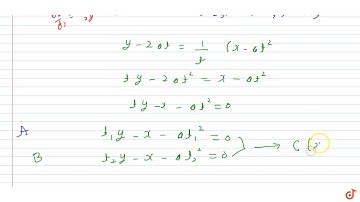 y - 2at = 1/t (x - at²
ty - 2at² = x - at²
ty - x - at² = 0
A t₁y - x - at₁² = 0
B t₂y - x - at₂² = 0 } → C (